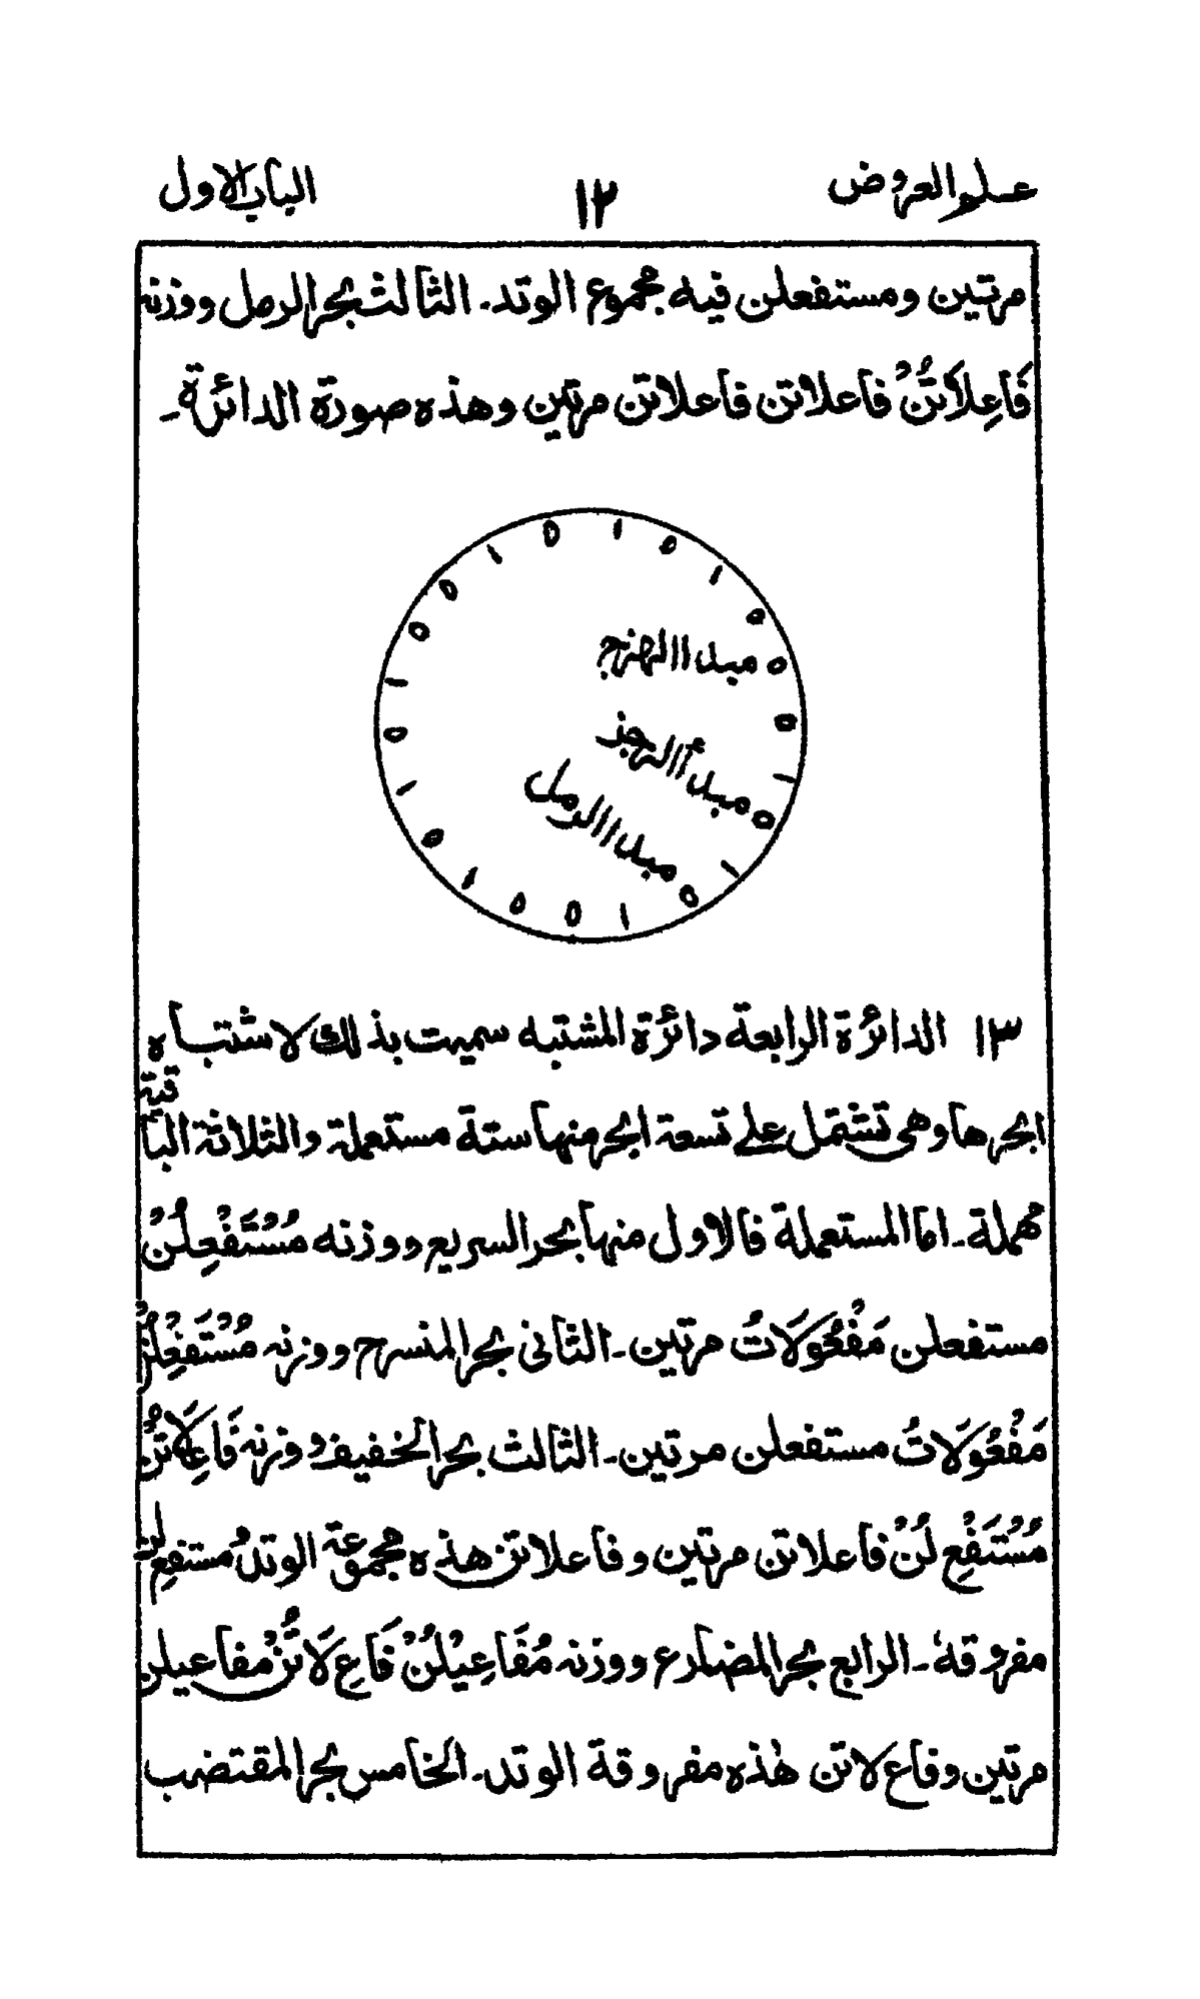 علم العروض
١٢
الباب الاول
مرتين ومستفعلن فيه مجموع الوتد۔ الثالث بحر الرمل ووزنه
فَاعِلَاتُنْ فاعلاتن فاعلاتن مرتين وهذه صورة الدائرة۔
ه ا ه ا ه ه ه ا ه ا ه ا ه ه ا ه ا ه ا ه ه ا
مبدا الهزج
مبدأ الرجز
مبدا الرمل
١٣ الدائرة الرابعة دائرة المشتبه سميت بذلك لاشتباه
ابحرها وهى تشتمل على تسعة ابحر منها ستة مستعملة والثلاثة الباقية
مهملة۔ اما المستعملة فالاول منها بحر السريع ووزنه مُسْتَفْعِلُنْ
مستفعلن مَفْعُولَاتُ مرتين۔ الثانى بحر المنسرح ووزنه مُسْتَفْعِلُنْ
مَفْعُولَاتُ مستفعلن مرتين۔ الثالث بحر الخفيف ووزنه فَاعِلَاتُنْ
مُسْتَفْعِ لُنْ فاعلاتن مرتين وفاعلاتن هذه مجموعة الوتد مستفع لن
مفروقه۔ الرابع بحر المضارع ووزنه مُفَاعِيْلُنْ فَاعِ لَاتُنْ مفاعيلن
مرتين وفاع لاتن هٰذه مفروقة الوتد۔ الخامس بحر المقتضب